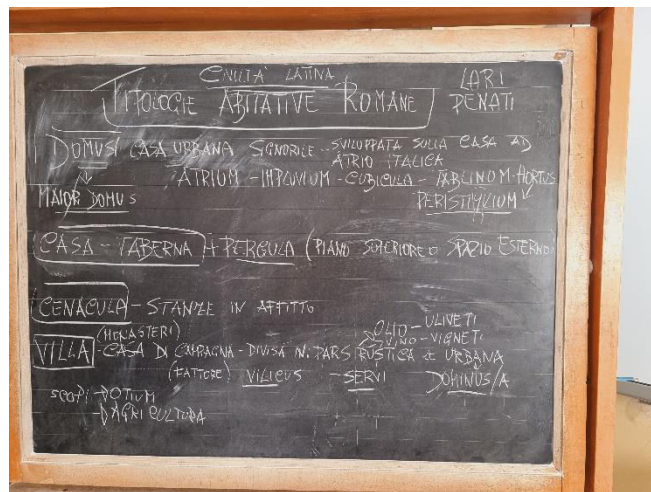 CIVILTÀ LATINA
TIPOLOGIE ABITATIVE ROMANE
LARI
PENATI
DOMUS CASA URBANA SIGNORILE - SVILUPPATA SULLA CASA AD
ATRIO ITALICA
ATRIUM - IMPLUVIUM - CUBICULA - TABLINUM - HORTUS
MAIOR DOMUS
PERISTYLIUM
CASA - TABERNA + PERGULA (PIANO SUPERIORE O SPAZIO ESTERNO)
CENACULA - STANZE IN AFFITTO
(MONASTERI)
OLIO - ULIVETI
VINO - VIGNETI
VILLA - CASA DI CAMPAGNA - DIVISA IN: PARS RUSTICA E URBANA
(FATTORE) VILICUS - SERVI DOMINUS/A
SCOPI OTIUM
AGRICULTURA